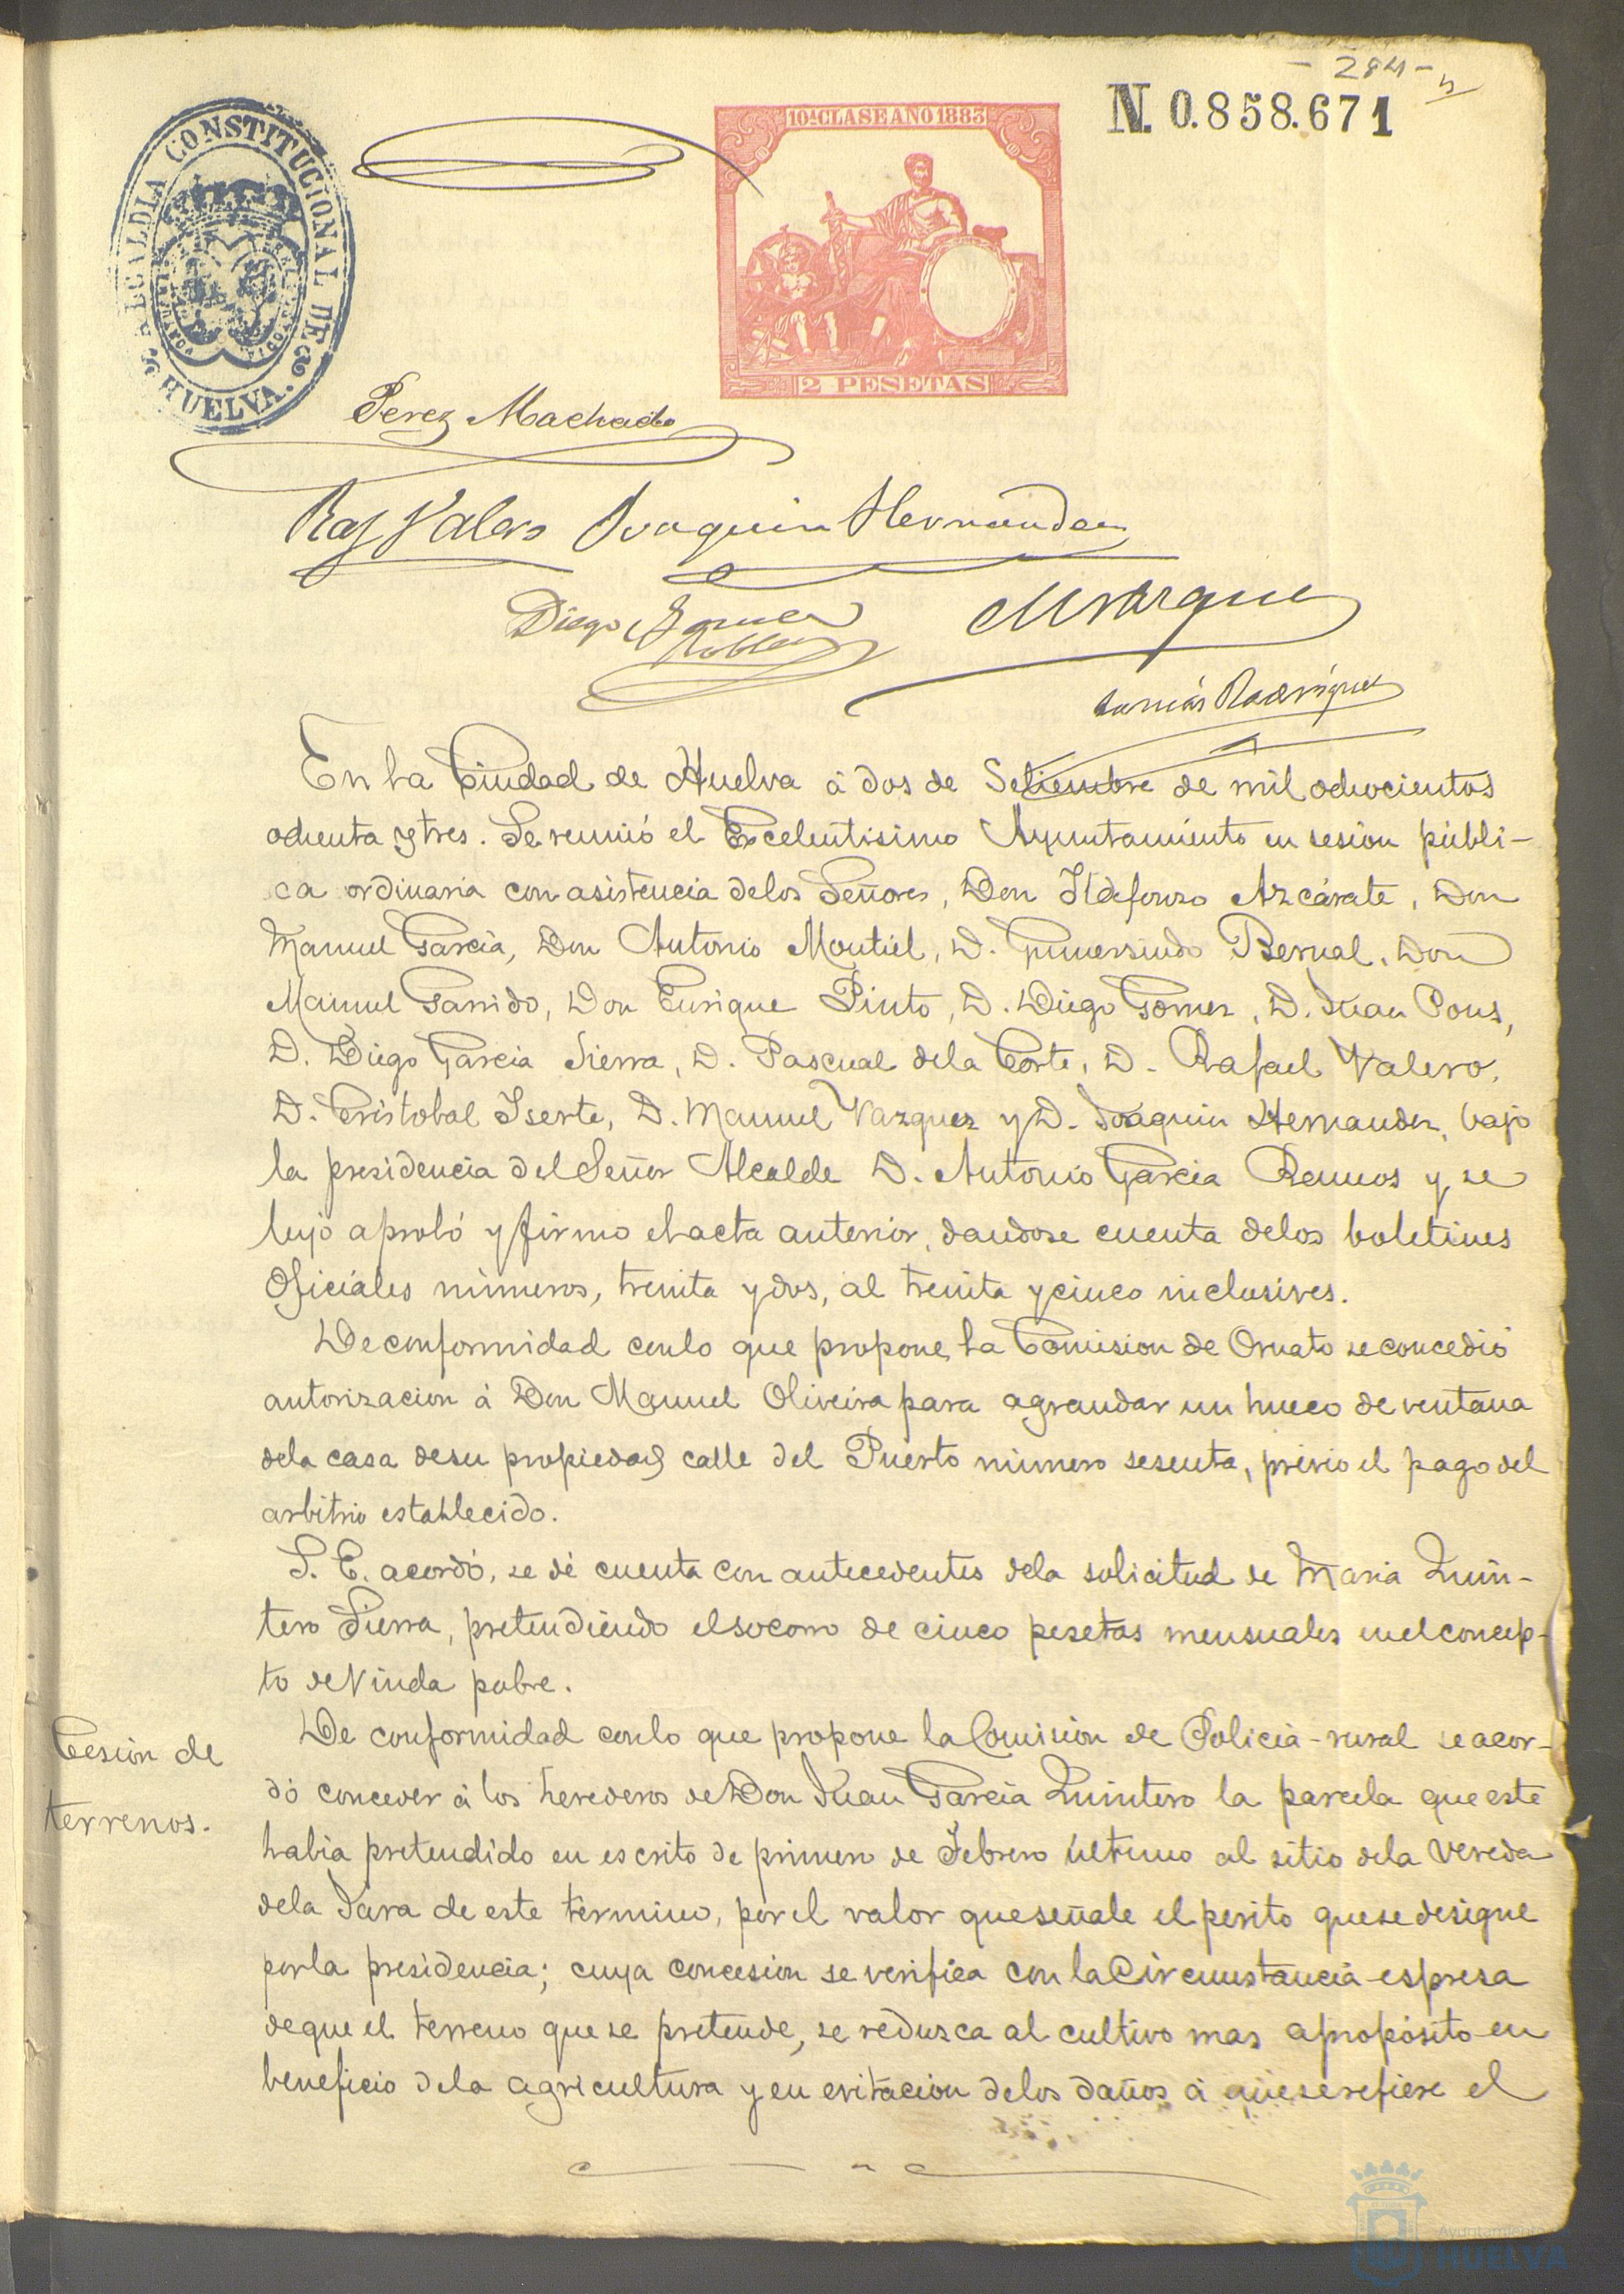 - 284 -
N. 0.858.671
ALCALDIA CONSTITUCIONAL DE HUELVA.
10ª CLASE AÑO 1883
2 PESETAS
Perez Machado
Raf Valero Joaquin Hernandez
Diego Gomez
Robles
Tomás Rodriguez
En la Ciudad de Huelva á dos de Setiembre de mil odhocientos
odhenta y tres. Se reunió el Excelentisimo Ayuntamiento en sesion públi-
ca ordinaria con asistencia delos Señores, Don Ildefonso Azcárate, Don
Manuel Garcia, Don Antonio Montiel, D. Gumersindo Bernal, Don
Manuel Garrido, Don Enrique Pinto, D. Diego Gomez, D. Juan Pons,
D. Diego Garcia Sierra, D. Pascual dela Corte, D. Rafael Valero,
D. Cristobal Iserte, D. Manuel Vazquez y D. Joaquin Hernandez, bajo
la presidencia del Señor Alcalde D. Antonio Garcia Ramos y se
leyó aprobó y firmo el acta anterior, dandose cuenta delos boletines
Oficiales números, treinta y dos, al treinta y cinco inclusives.
De conformidad conlo que propone la Comision de Ornato se concedió
autorizacion á Don Manuel Oliveira para agrandar un hueco de ventana
dela casa desu propiedad calle del Puerto número sesenta, prévio el pago del
arbitrio establecido.
S. E. acordó, se dé cuenta con antecedentes dela solicitud de Maria Quin-
tero Sierra, pretendiendo el socorro de cinco pesetas mensuales enel concep-
to de Viuda pobre.
Cesion de
terrenos.
De conformidad conlo que propone la Comision de Policia-rural se acor-
dó conceder á los herederos de Don Juan Garcia Quintero la parcela que este
habia pretendido en escrito de primero de Febrero último al sitio dela Vereda
dela Jara de este termino, por el valor que señale el perito que se designe
porla presidencia; cuya concesion se verifica con la Circunstancia espresa
de que el terreno que se pretende, se reduzca al cultivo mas apropósito en
beneficio dela agricultura y en evitacion delos daños á que se refiere el
Ayuntamiento
HUELVA